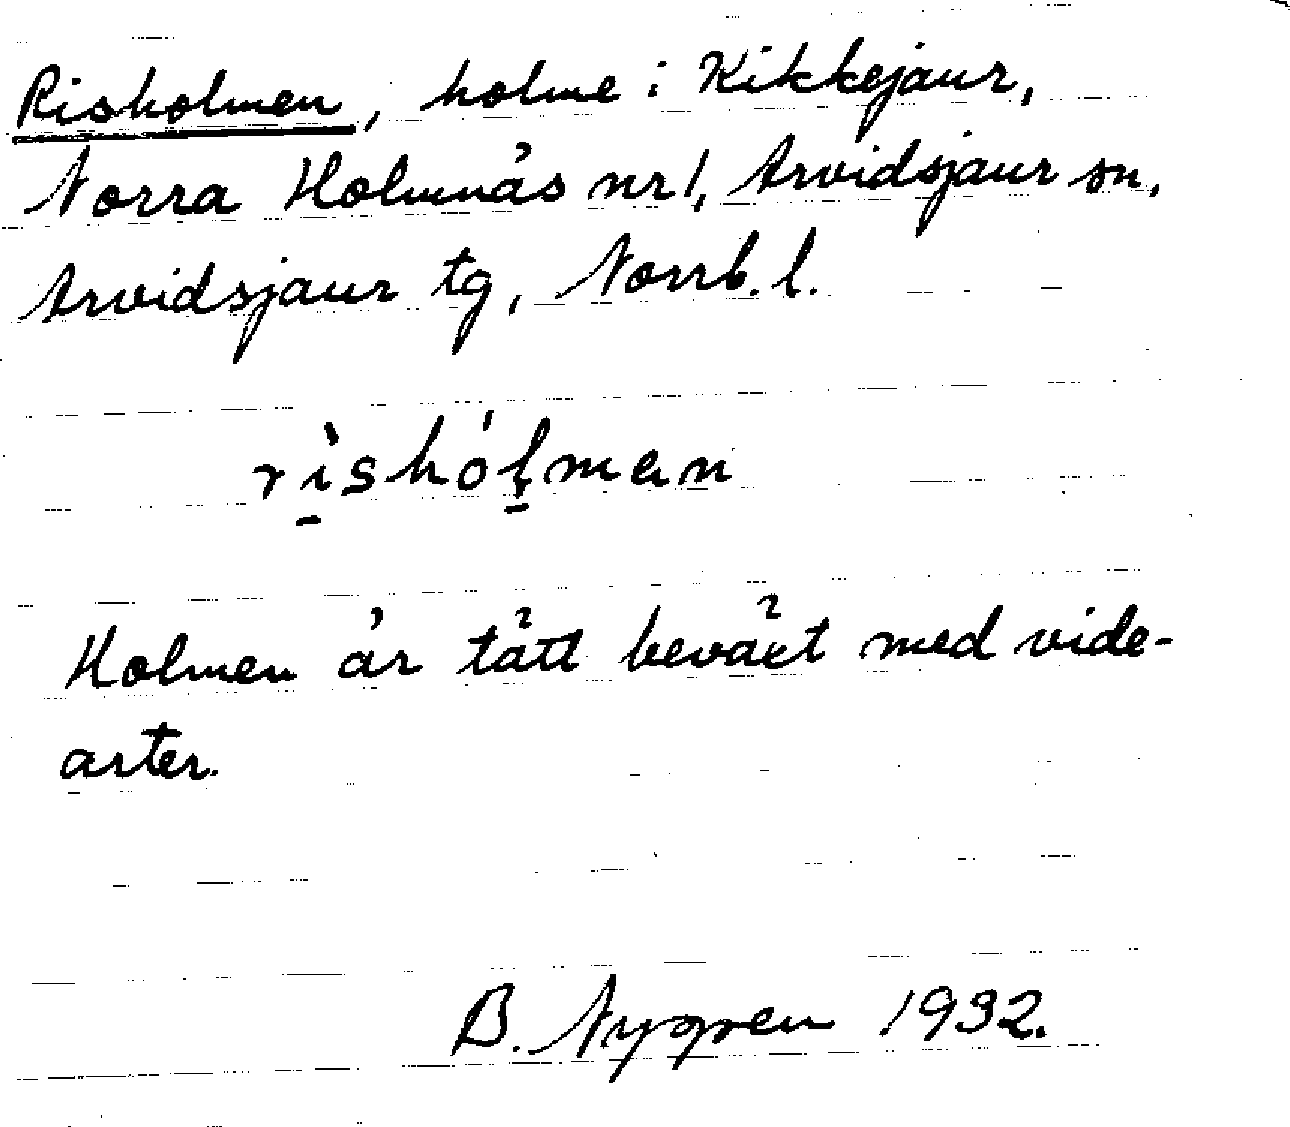 Risholmen, holme i Kikkejaur,
Norra Holmnäs nr 1, Arvidsjaur sn,
Arvidsjaur tg, Norrb. l.
rı̀shól̠man
Holmen är tätt beväxt med vide-
arter.
B. Nygren 1932.